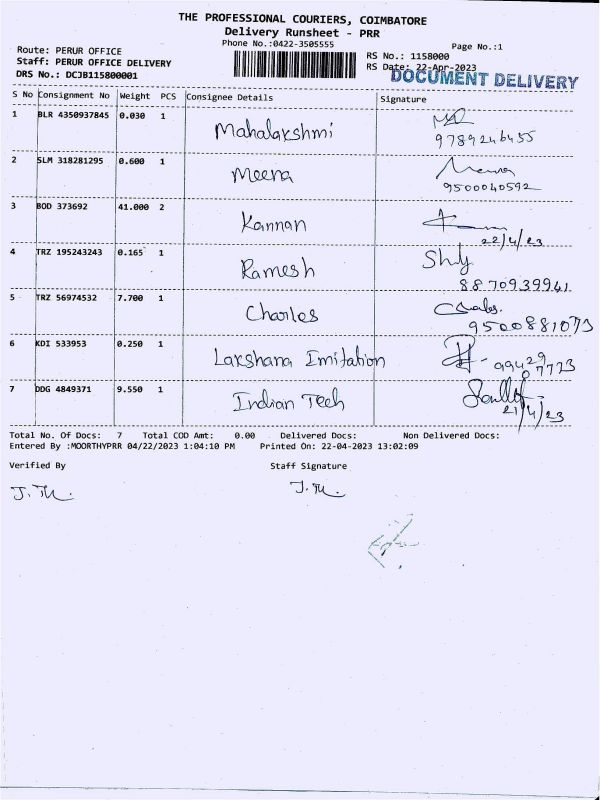 THE PROFESSIONAL COURIERS, COIMBATORE
Delivery Runsheet - PRR
Phone No.:0422-3505555
Page No.:1
Route: PERUR OFFICE
Staff: PERUR OFFICE DELIVERY
DRS No.: DCJB115800001
RS No.: 1158000
RS Date: 22-Apr-2023
DOCUMENT DELIVERY
S No Consignment No Weight PCS Consignee Details Signature
1 BLR 4350937845 0.030 1 Mahalakshmi
9789246455
2 SLM 318281295 0.600 1 Meena Meena
9500040592
3 BOD 373692 41.000 2 Kannan
22/4/23
4 TRZ 195243243 0.165 1 Ramesh
8870939941
5 TRZ 56974532 7.700 1 Charles
9500881073
6 KDI 533953 0.250 1 Lakshana Imitation
99429
07773
7 DDG 4849371 9.550 1 Indian Tech
21/4/23
Total No. Of Docs: 7 Total COD Amt: 0.00 Delivered Docs: Non Delivered Docs:
Entered By :MOORTHYPRR 04/22/2023 1:04:10 PM Printed On: 22-04-2023 13:02:09
Verified By Staff Signature